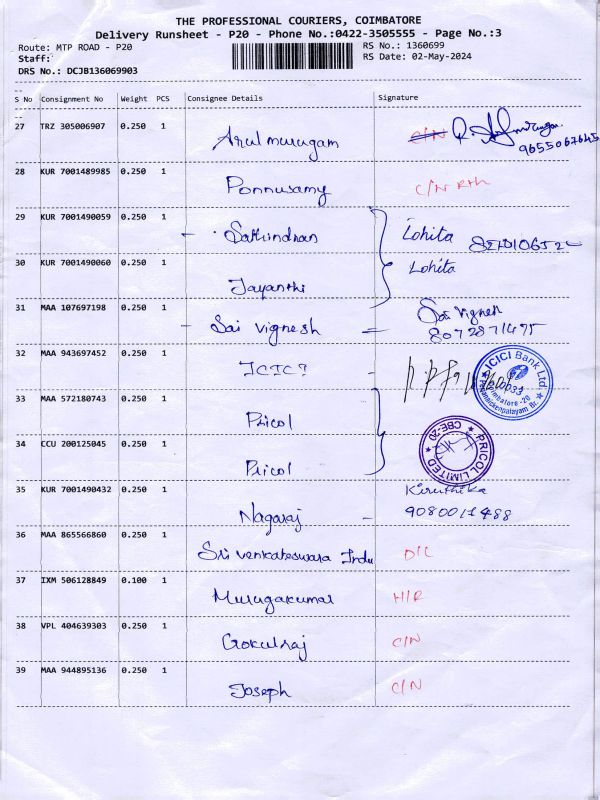 THE PROFESSIONAL COURIERS, COIMBATORE
Delivery Runsheet - P20 - Phone No.:0422-3505555 - Page No.:3
Route: MTP ROAD - P20 RS No.: 1360699
Staff: RS Date: 02-May-2024
DRS No.: DCJB136069903
S No Consignment No Weight PCS Consignee Details Signature
27 TRZ 305006907 0.250 1 Arulmurugam C/N
9655067645
28 KUR 7001489985 0.250 1 Ponnusamy C/N
29 KUR 7001490059 0.250 1 Sathindran Lohita
30 KUR 7001490060 0.250 1 Jayanthi Lohita
31 MAA 107697198 0.250 1 Sai Vignesh = Sai Vignesh
8072871475
32 MAA 943697452 0.250 1 ICICI - ICICI Bank Ltd. Coimbatore-20
33 MAA 572180743 0.250 1 Pricol
34 CCU 200125045 0.250 1 Pricol PRICOL LIMITED CBE-20
35 KUR 7001490432 0.250 1 Nagaraj - Kiruthika
36 MAA 865566860 0.250 1 Sri Venkateswara Indu D/L
37 IXM 506128849 0.100 1 Murugakumar H/R
38 VPL 404639303 0.250 1 Gokulraj C/N
39 MAA 944895136 0.250 1 Joseph C/N